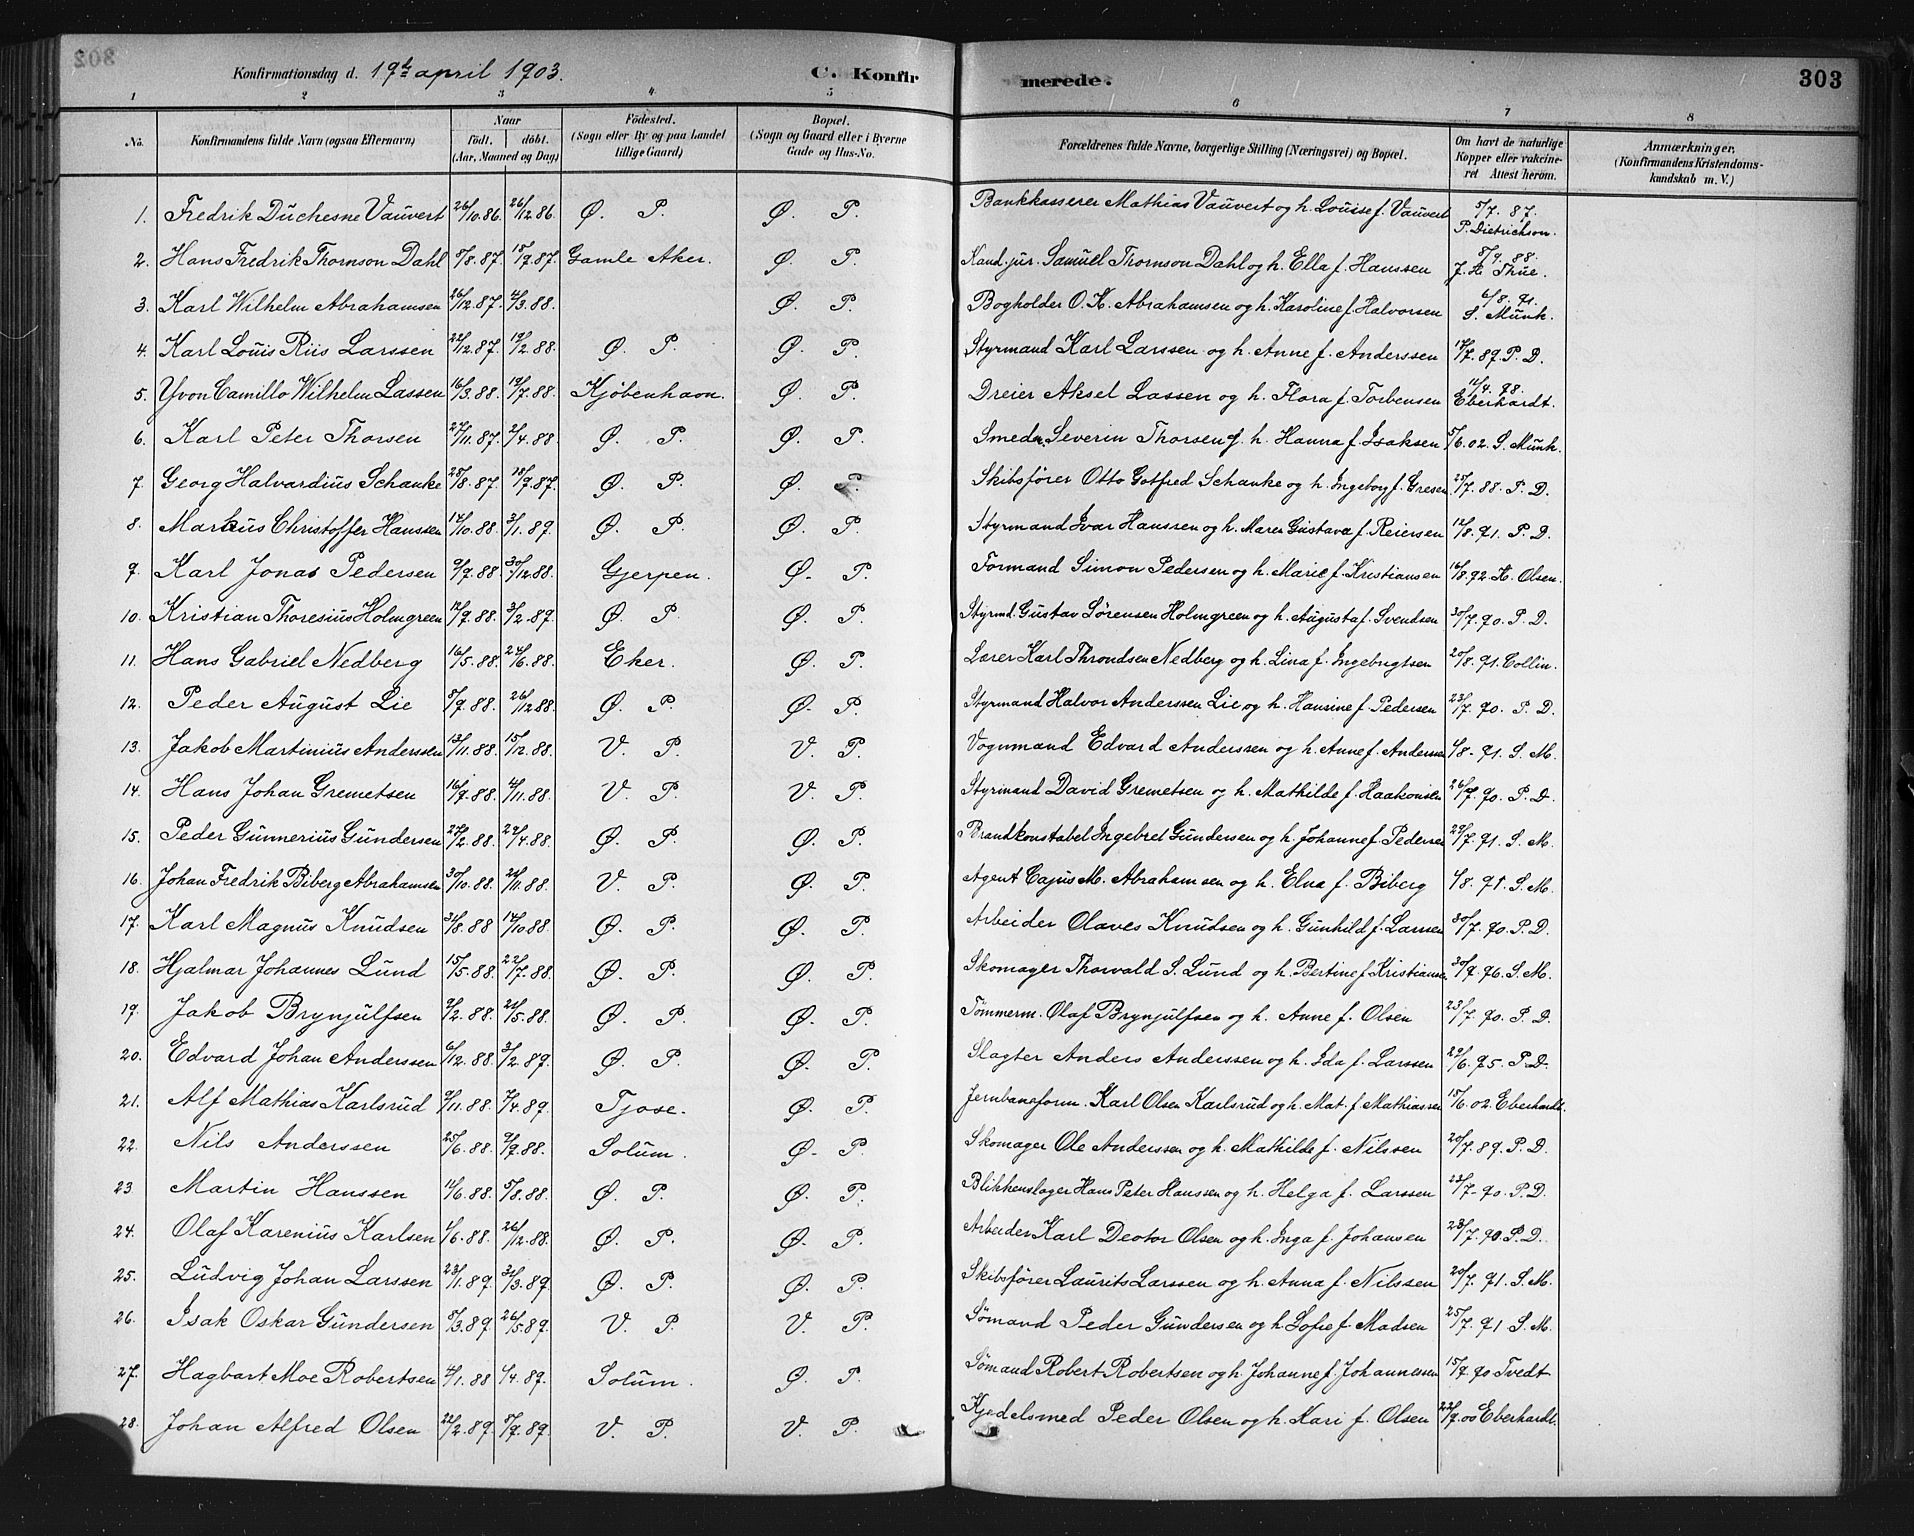 Konfirmationsdag d. 19de april 1903. C. Konfirmerede. 303
1 2 3 4 5 6 7 8
No. Konfirmandens fulde Navn (ogsaa Efternavn) Naar födt. döbt. (Aar, Maaned og Dag) Födested. (Sogn eller By og paa Landet tillige Gaard) Bopæl. (Sogn og Gaard eller i Byerne Gade og Hus-No. Forældrenes fulde Navne, borgerlige Stilling (Næringsvei) og Bopæl. Om havt de naturlige Kopper eller vakcineret Attest herom. Anmærkninger, (Konfirmandens Kristendomskundskab m. V.)
1. Fredrik Duchesne Vauvert 26/10.86. 26/12.86. Ø. P. Ø. P. Bankkasserer Mathias Vauvert og h. Louise f. Vauvert 5/7. 87. P. Dietrichson.
2. Hans Fredrik Thornson Dahl 5/8.87. 18/9.87. Gamle Aker. Ø. P. Kand. jur. Samuel Thomson Dahl og h. Ella f. Hanssen 8/9. 88. Thue.
3. Karl Wilhelm Abrahamsen 26/12.87. 4/3.88. Ø. P. Bogholder O. K. Abrahamsen og h. Karoline f. Halvorsen 6/8. 91. S. Munk.
4. Karl Louis Riis Larssen 22/12.87. 19/2.88. Ø. P. Ø. P. Styrmand Karl Larssen og h. Anne f. Anderssen 17/7. 89. P. D.
5. Yvon Camillo Wilhelm Lassen 16/3.88. 19/7.88. Kjøbenhavn. Ø. P. Dreier Aksel Lassen og h. Flora f. Torbensen 12/4. 98. Eberhardt.
6. Karl Peter Thorsen 27/11.87. 2/4.88. Ø. P. Ø. P. Smedm. Severin Thorsen og h. Hanna f. Isaksen 5/6.02. S. Munk.
7. Georg Halvardius Schanke 28/8.87. 18/9.87. Ø. P. Ø. P. Skibsfører Otto Gotfred Schanke og h. Ingeborg f. Gresen 25/7.88. P. D.
8. Markus Christoffer Hanssen 17/10.88. 3/1.89. Ø. P. Ø. P. Styrmand Ivar Hanssen og h. Maren Gustava f. Reiersen 12/8.91. P. D.
9. Karl Jonas Pedersen 9/9.88. 30/12.88. Gjerpen. Ø. P. Formand Simon Pedersen og h. Marie f. Kristiansen 16/8.92. K. Olsen.
10. Kristian Thoresius Holmgreen 12/9.88. 3/2.89. Ø. P. Ø. P. Styrmd. Gustav Sørensen Holmgreen og h. Augusta f. Svendsen 30/7.90. P. D.
11. Hans Gabriel Nedberg 16/5.88. 24/6.88. Eker. Ø. P. Lærer Karl Throndsen Nedberg og h. Lina f. Ingebrigtsen 20/8.91. Collin.
12. Peder August Lie 5/9.88. 26/12.88. Ø. P. Ø. P. Styrmand Halvor Anderssen Lie og h. Hansine f. Pedersen 23/7.90. P. D.
13. Jakob Martinius Anderssen 13/11.88. 15/12.88. V. P. V. P. Vognmand Edvard Anderssen og h. Anne f. Andersen 4/8.91. S. M.
14. Hans Johan Gremetsen 16/9.88. 4/11.88. V. P. V. P. Styrmand David Gremetsen og h. Mathilde f. Haakonsen 26/7.90. P. D.
15. Peder Gunnerius Gundersen 27/2.88. 29/4.88. Ø. P. Ø. P. Brandkonstabel Ingebret Gundersen og h. Johanne f. Pedersen 29/7.91. S. M.
16. Johan Fredrik Biberg Abrahamsen 30/10.88. 24/11.88. V. P. Ø. P. Agent Cajus M. Abrahamsen og h. Elna f. Biberg 4/8. 91. S. M.
17. Karl Magnus Knudsen 31/8.88 17/10.88. Ø. P. Ø. P. Arbeider Olaves Knudsen og h. Gunhild f. Larssen 30/7.90. P. D.
18. Hjalmar Johannes Lund 15/5.88. 22/7.88. Ø. P. Ø. P. Skomager Thorvald S. Lund og h. Bertine f. Kristianse 30/9.96. S. M.
19. Jakob Brynjulfsen 9/2.88. 21/5.88. Ø. P. Ø. P. Tømmerm. Olaf Brynjulfsen og h. Anne f. Olsen 23/7.90. P. D.
20. Edvard Johan Anderssen 6/12.88. 3/2.89. Ø. P. Ø. P. Slagter Anders Anderssen og h. Ida f. Larssen 29/6.95. P. D.
21. Alf Mathias Karlsrud 9/11.88. 7/4.89. Tjose. Ø. P. Jernbaneform. Karl Olsen Karlsrud og h. Mat. f. Mathiassen 15/6.02. Eberhardt.
22. Nils Anderssen 25/6.88. 9/9.88. Solum. Ø. P. Skomager Ole Anderssen og h. Mathilde f. Nilssen 20/7.89. P. D.
23 Martin Hanssen 14/6.88. 5/8.88. Ø. P. Ø. P. Blikkenslager Hans Peter Hanssen og h. Helga f. Larssen 23/7.90. P. D.
24. Olaf Karenius Karlsen 1/6.88. 26/12.88. Ø. P. Ø. P. Arbeider Karl Deotor Olsen og h. Inga f. Johansen 23/7.90. P. D.
25. Ludvig Johan Larssen 23/1.89. 31/3.89. Ø. P. Ø. P. Skibsfører Laurits Larssen og h. Anna f. Nilssen 20/7.91. S. M.
26. Isak Oskar Gundersen 8/3.89. 26/5.89. V. P. V. P. Sømand Peder Gundersen og h. Sofie f. Madsen 25/7.91 S. M.
27. Hagbart Moe Robertsen 4/1.88 1/4.89. Solum. Ø. P. Sømand Robert Robertsen og h. Johanne f. Johannessen 15/9.90 Tvedt
28. Johan Alfred Olsen 22/2.89. 8/9.89. V. P. V. P. Kjedelsmed Peder Olsen og h. Kari f. Olsen 22/9.00 Eberhardt.